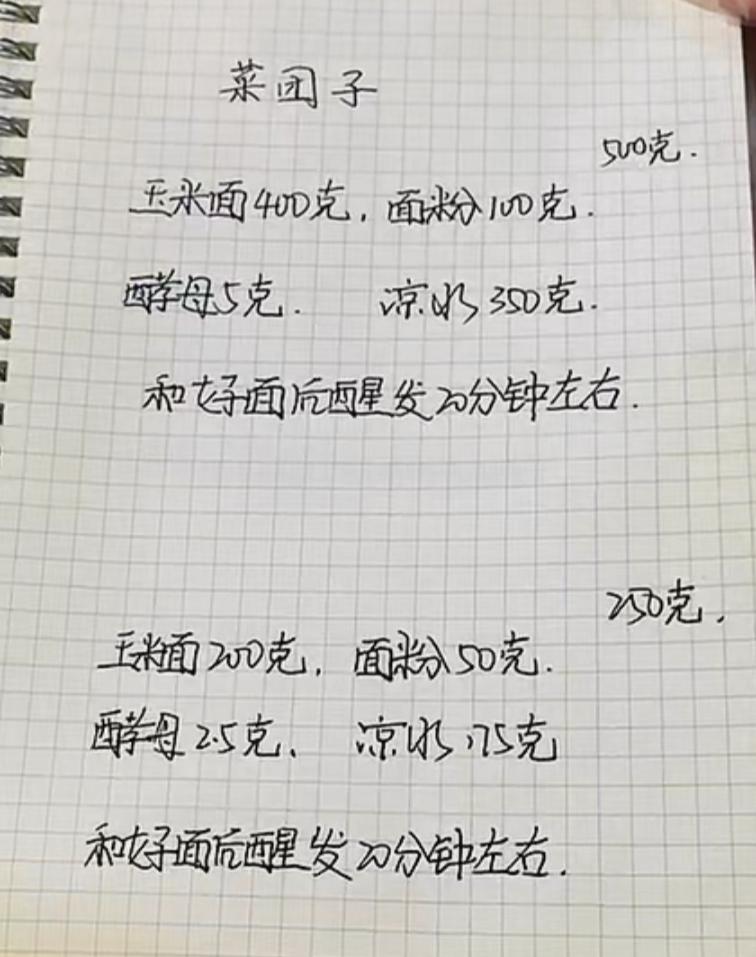 菜团子
500克.
玉米面400克, 面粉100克.
酵母5克. 凉水350克.
和好面后醒发20分钟左右.
250克.
玉米面200克, 面粉50克.
酵母2.5克、 凉水175克
和好面后醒发20分钟左右.